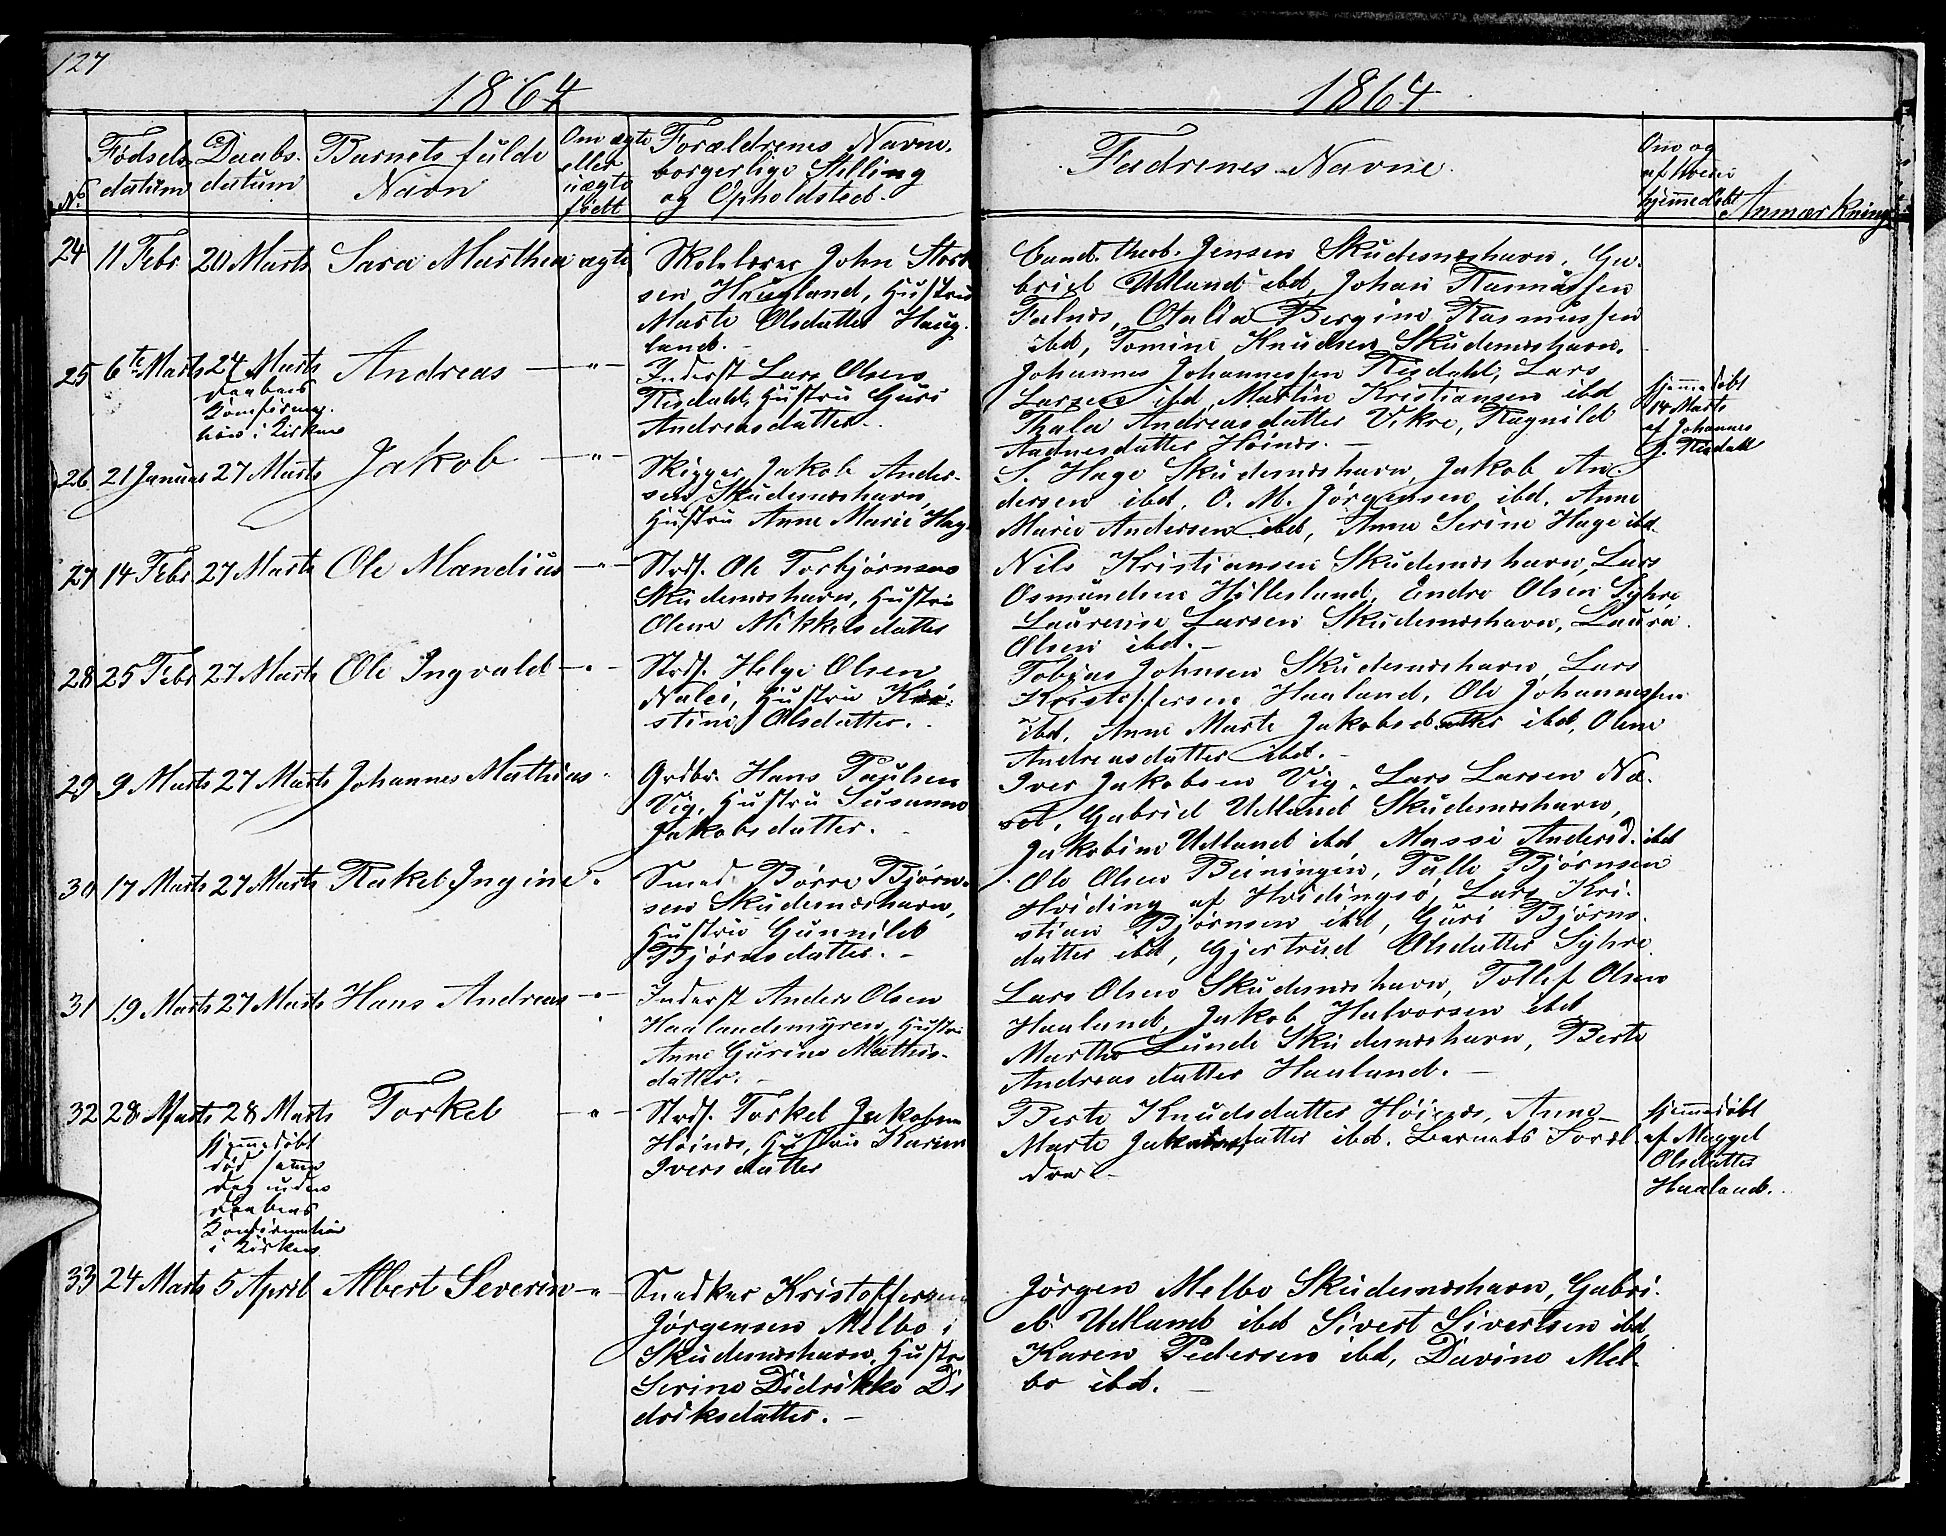 127
1864
1864
No
Fødsels
datum
Daabs
datum
Barnets fulde
Navn
Om ægte
eller
uægte
født
Forældrenes Navn,
borgerlige Stilling
og Opholdsted.
Fadrenes Navne.
Om og
af hvem
hjemmedøbt
Anmærkning
24 11 Febr 20 Marts Sara Marthea ægte
Skolelærer John
sen Haugland, Hustru
Marte Olsdatter Haug
land.
Cand. theol. Jensen Skudesnæshavn, Ga-
briel Udland ibd, Johan Rasmussen
Falnæs, Otalia Bergine Rasmussen
ibd, Tomine Knudsen Skudesnæshavn.
25 6te Marts 24 Marts
Daabens
Konfirma
tion i Kirken
Andreas — " —
Inderst Lars Olsen
Risdahl, Hustru Guri
Andreasdatter.
Johannes Johannessen Risdahl, Lars
Larsen ibd, Martin Kristiansen ibd
Thala Andreasdatter Vikre, Ragnild
Aadnesdatter Høines. —
hjemmedøbt
14 Marts
af Johannes
J. Risdall
26. 21 Januar 27 Marts Jakob — " —
Skipper Jakob Ander-
sen Skudesnæshavn,
Hustru Anne Marie Hage
S. Hage Skudesnæshavn, Jakob An-
dersen ibd, O. M. Jørgensen ibd. Anne
Marie Andersen ibd, Anne Serine Hage ibd.
27 14 Febr 27 Marts Ole Mandius — " —
Strds. Ole Torbjørnsen
Skudesnæshavn, Hustru
Olene Mikkelsdatter
Nils Kristiansen Skudesnæshavn, Lars
Osmundsen Hillesland, Endre Olsen Syhre
Laurense Larsen Skudesnæshavn, Laura
Olsen ibd. —
28 25 Febr 27 Marts Ole Ingvald — " —
Strds. Helge Olsen
Hustru Kri-
stine Olsdatter.
Tobias Johnsen Skudesnæshavn, Lars
Kristoffersen Haaland, Ole Johannessen
ibd. Anne Marte Jakobsdatter ibd, Olene
Andreasdatter ibd. —
29 9 Marts 27 Marts Johannes Mathias "
Grdbr. Hans Paulsen
Vig, Hustru Susanne
Jakobsdatter. —
Iver Jakobsen Vig, Lars Larsen Næ-
set, Gabriel Udland Skudesnæshavn,
Jakobine Udland ibd Massi Andersd. ibd
30 17 Marts 27 Marts Rakel Ingine "
Smed Børre Bjørn-
sen Skudesnæshavn,
Hustru Gunnild
Bjørnsdatter. —
Ole Olsen Beiningen, Palle Bjørnsen
Hviding af Hvidingsø, Lars Kri-
stian Bjørnsen ibd, Guri Bjørns-
datter ibd, Gjertrud Olsdatter Syhre
31 19 Marts 27 Marts Hans Andreas — " —
Inderst Anders Olsen
Haalandsmyren, Hustru
Anne Gurine Mathis-
datter. —
Lars Olsen Skudesnæshavn, Tollef Olsen
Haaland, Jakob Halvorsen ibd
Marthe Lunde Skudesnæshavn, Berte
Andreasdatter Haaland. —
32 28 Marts 28 Marts
hjemmedøbt
død samme
Dag uden
Daabens
Konfirmation
i Kirken
Torkel — " —
Strds. Torkel Jakobsen
Høines, Hustru Karine
Iversdatter
Berte Knudsdatter Høines, Anne
Marte Jakobsdatter ibd. Barnets Foræl-
dre —
hjemmedøbt
af Maggel
Olsdatter
Haaland.
33 24 Marts 5 April Albert Severin — " —
Snedker Kristoffersen
Jørgensen Melbo i
Skudesnæshavn, Hustru
Serine Didrikke Di
driksdatter. —
Jørgen Melbo Skudesnæshavn, Gabri-
el Udland ibd Sivert Sivertsen ibd,
Karen Pedersen ibd, Davine Mel-
bo ibd. —